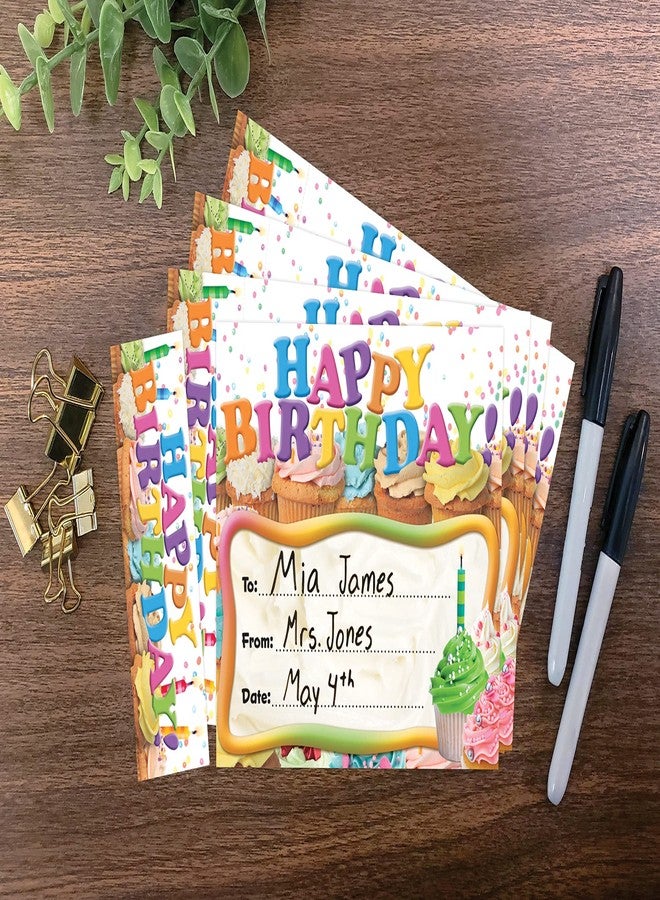 HAPPY
BIRTHDAY!
To: Mia James
From: Mrs. Jones
Date: May 4th
HAPPY
BIRTHDAY!